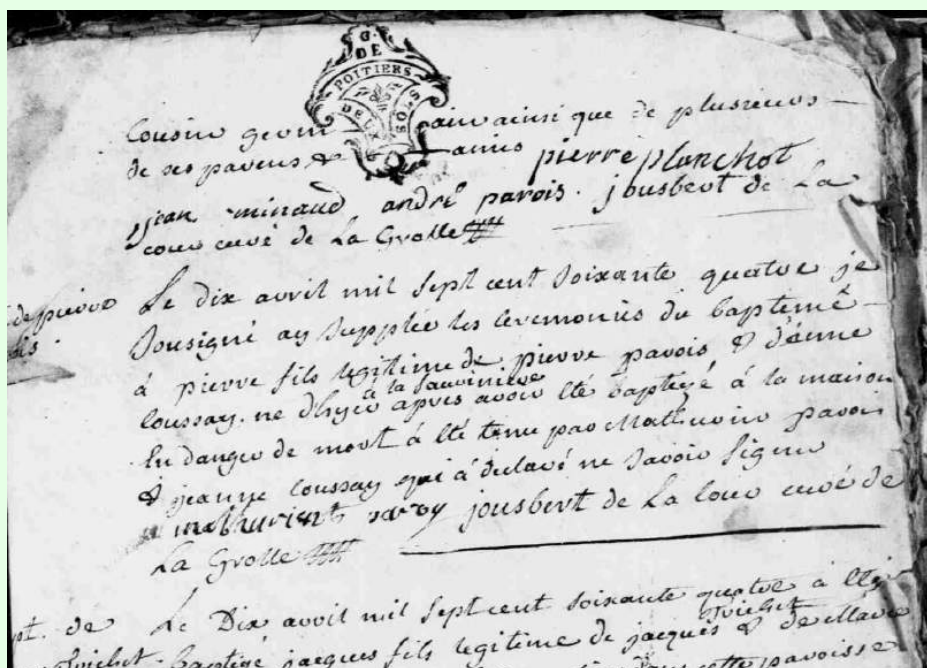 G. DE
POITIERS
DEUX SOLS
Cousin germain ainsi que de plusieurs
de ses parens & amis pierre planchot
jean minaud andré parois. jousbert de La
cour curé de La Grolle
de pierre Le dix avril mil sept cent soixante quatre je
Sousigné ay Supplée les ceremonies du baptemê
à pierre fils legitime de pierre parois & d'énne
a la sauvinière
loussay, ne d'hyer apres avoir été baptizé à la maison
En danger de mort à été tenu par Mathurin parois
& jeanne loussay qui à declaré ne savoir signer
mathurint jousbert de La Cour curé de
La Grolle
de Le Dix avril mil sept cent soixante quatre à été
Trichet
Trichet Baptisé jacques fils legitime de jacques & de Marie
cette paroisse